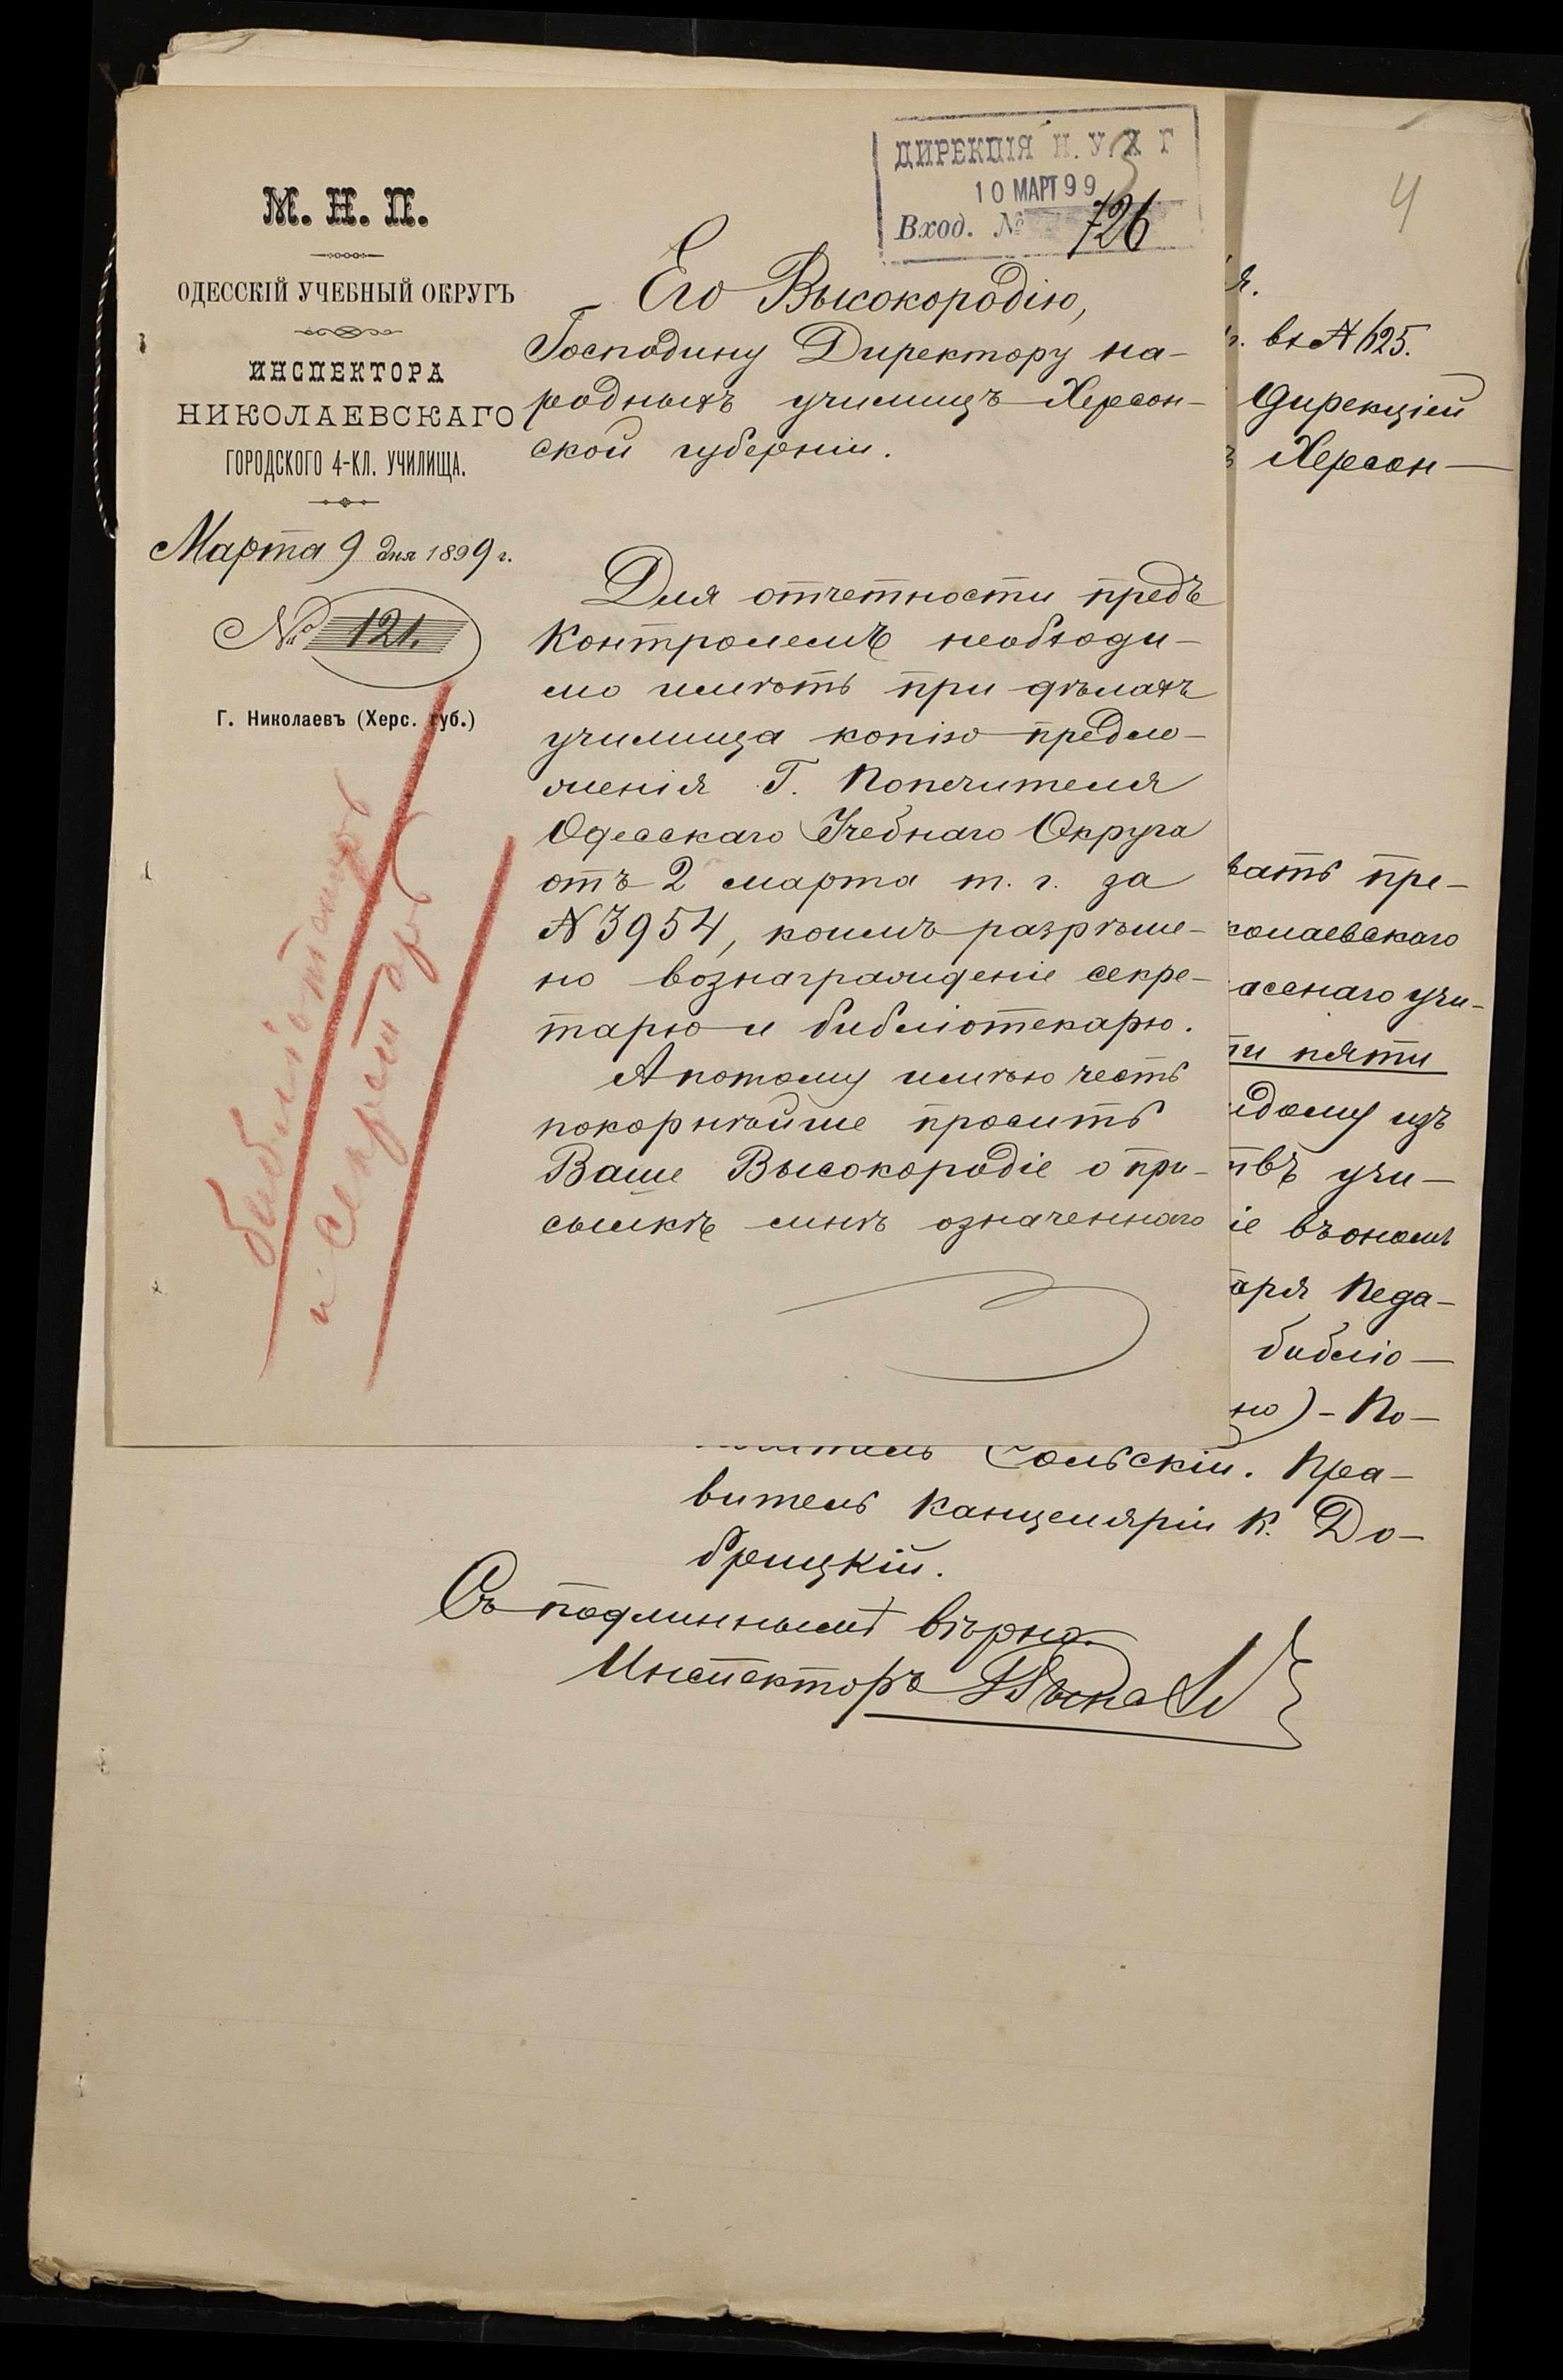 ДИРЕКЦІЯ Н. У. Х Г
10 МАРТ 99
Вход. № 726
4
М. Н. П.
ОДЕССКІЙ УЧЕБНЫЙ ОКРУГЪ
ИНСПЕКТОРА
НИКОЛАЕВСКАГО
ГОРОДСКОГО 4-КЛ. УЧИЛИЩА.
Марта 9 дня 1899 г.
№ 121.
Г. Николаевъ (Херс. губ.)
Его Высокородію,
Господину Директору на-
родныхъ училищъ Херсон-
ской губерніи.
Для отчетности предъ
Контролемъ необходи-
мо имѣть при дѣлахъ
училища копію предло-
женія Г. Попечителя
Одесскаго Учебнаго Округа
отъ 2 марта т. г. за
№ 3954, коимъ разрѣше-
но вознагражденіе секре-
тарю и библіотекарю.
А потому имѣю честь
покорнѣйше просить
Ваше Высокородіе о при-
сылкѣ мнѣ означеннаго
и секретаря
я.
вх № 625.
Дирекціей
Херсон-
вать пре-
колаевскаго
асснаго учи-
ти пяти
ждому изъ
твъ учи-
іе въ ономъ
таря Педа-
библіо-
но) - По-
Сольскій. Пра-
витель Канцеляріи К. До-
брицкій.
Съ подлиннымъ вѣрно.
Инспекторъ